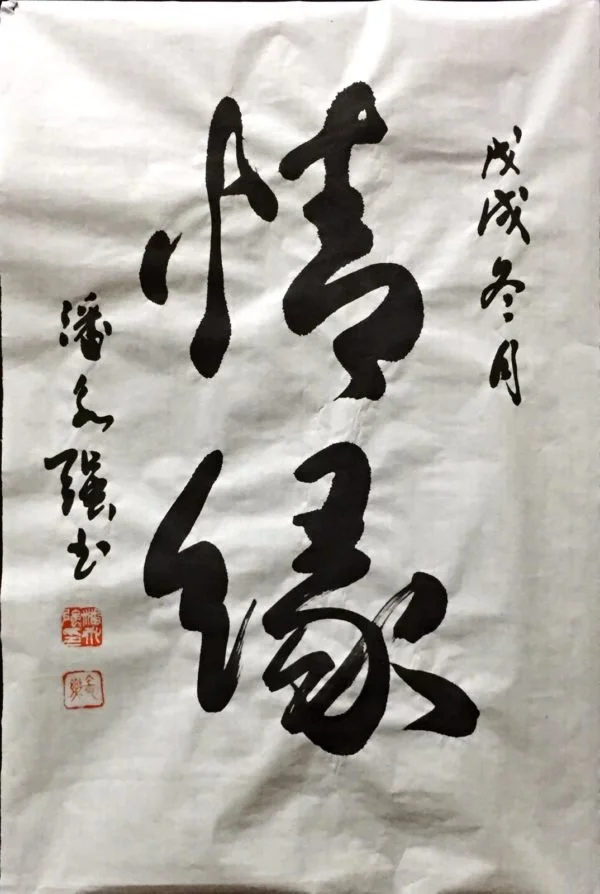 戊戌冬月
情缘
潘 强书